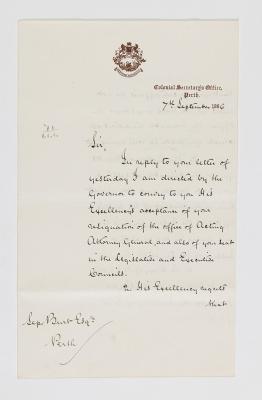 Colonial Secretary's Office,
Perth.
7th September 1886
Sir,
In reply to your letter of
yesterday I am directed by the
Governor to convey to you His
Excellency's acceptance of your
resignation of the office of Acting
Attorney General, and also of your seat
in the Legislative and Executive
Councils.
2. His Excellency regrets
that
Sep. Burt Esqre
Perth